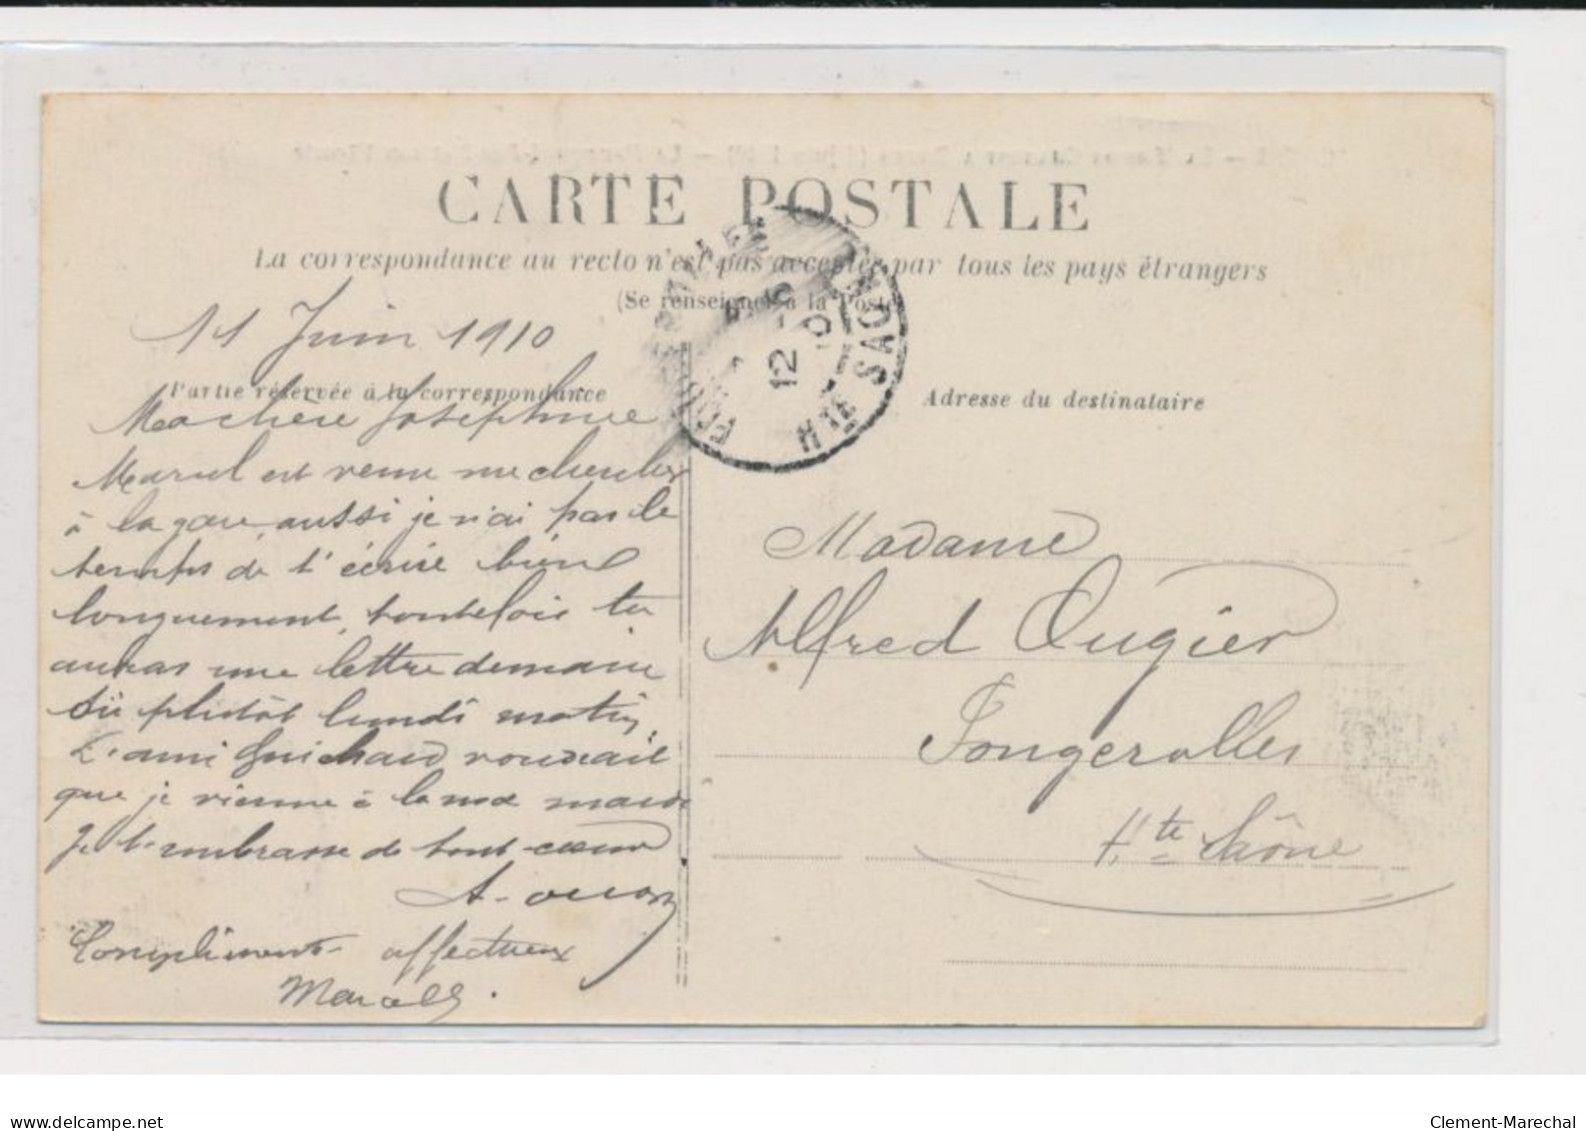 CARTE POSTALE
La correspondance au recto n'est pas acceptée par tous les pays étrangers
(Se renseigner à la Poste)
11 Juin 1910
Partie réservée à la correspondance
Adresse du destinataire
Ma chère Joséphine
Marcel est venu me chercher
à la gare, aussi je n'ai pas le
temps de t'écrire bien
longuement, toutefois tu
auras une lettre demain
ou plutôt lundi matin,
L'ami Guichard voudrait
que je vienne à la noce mardi
Je t'embrasse de tout coeur
A.
Compliments affectueux
Marcel
Madame
Alfred Ougier
Fougerolles
Hte Saône
12 -6
10
HTE SAONE
delcampe.net
Clement-Marechal